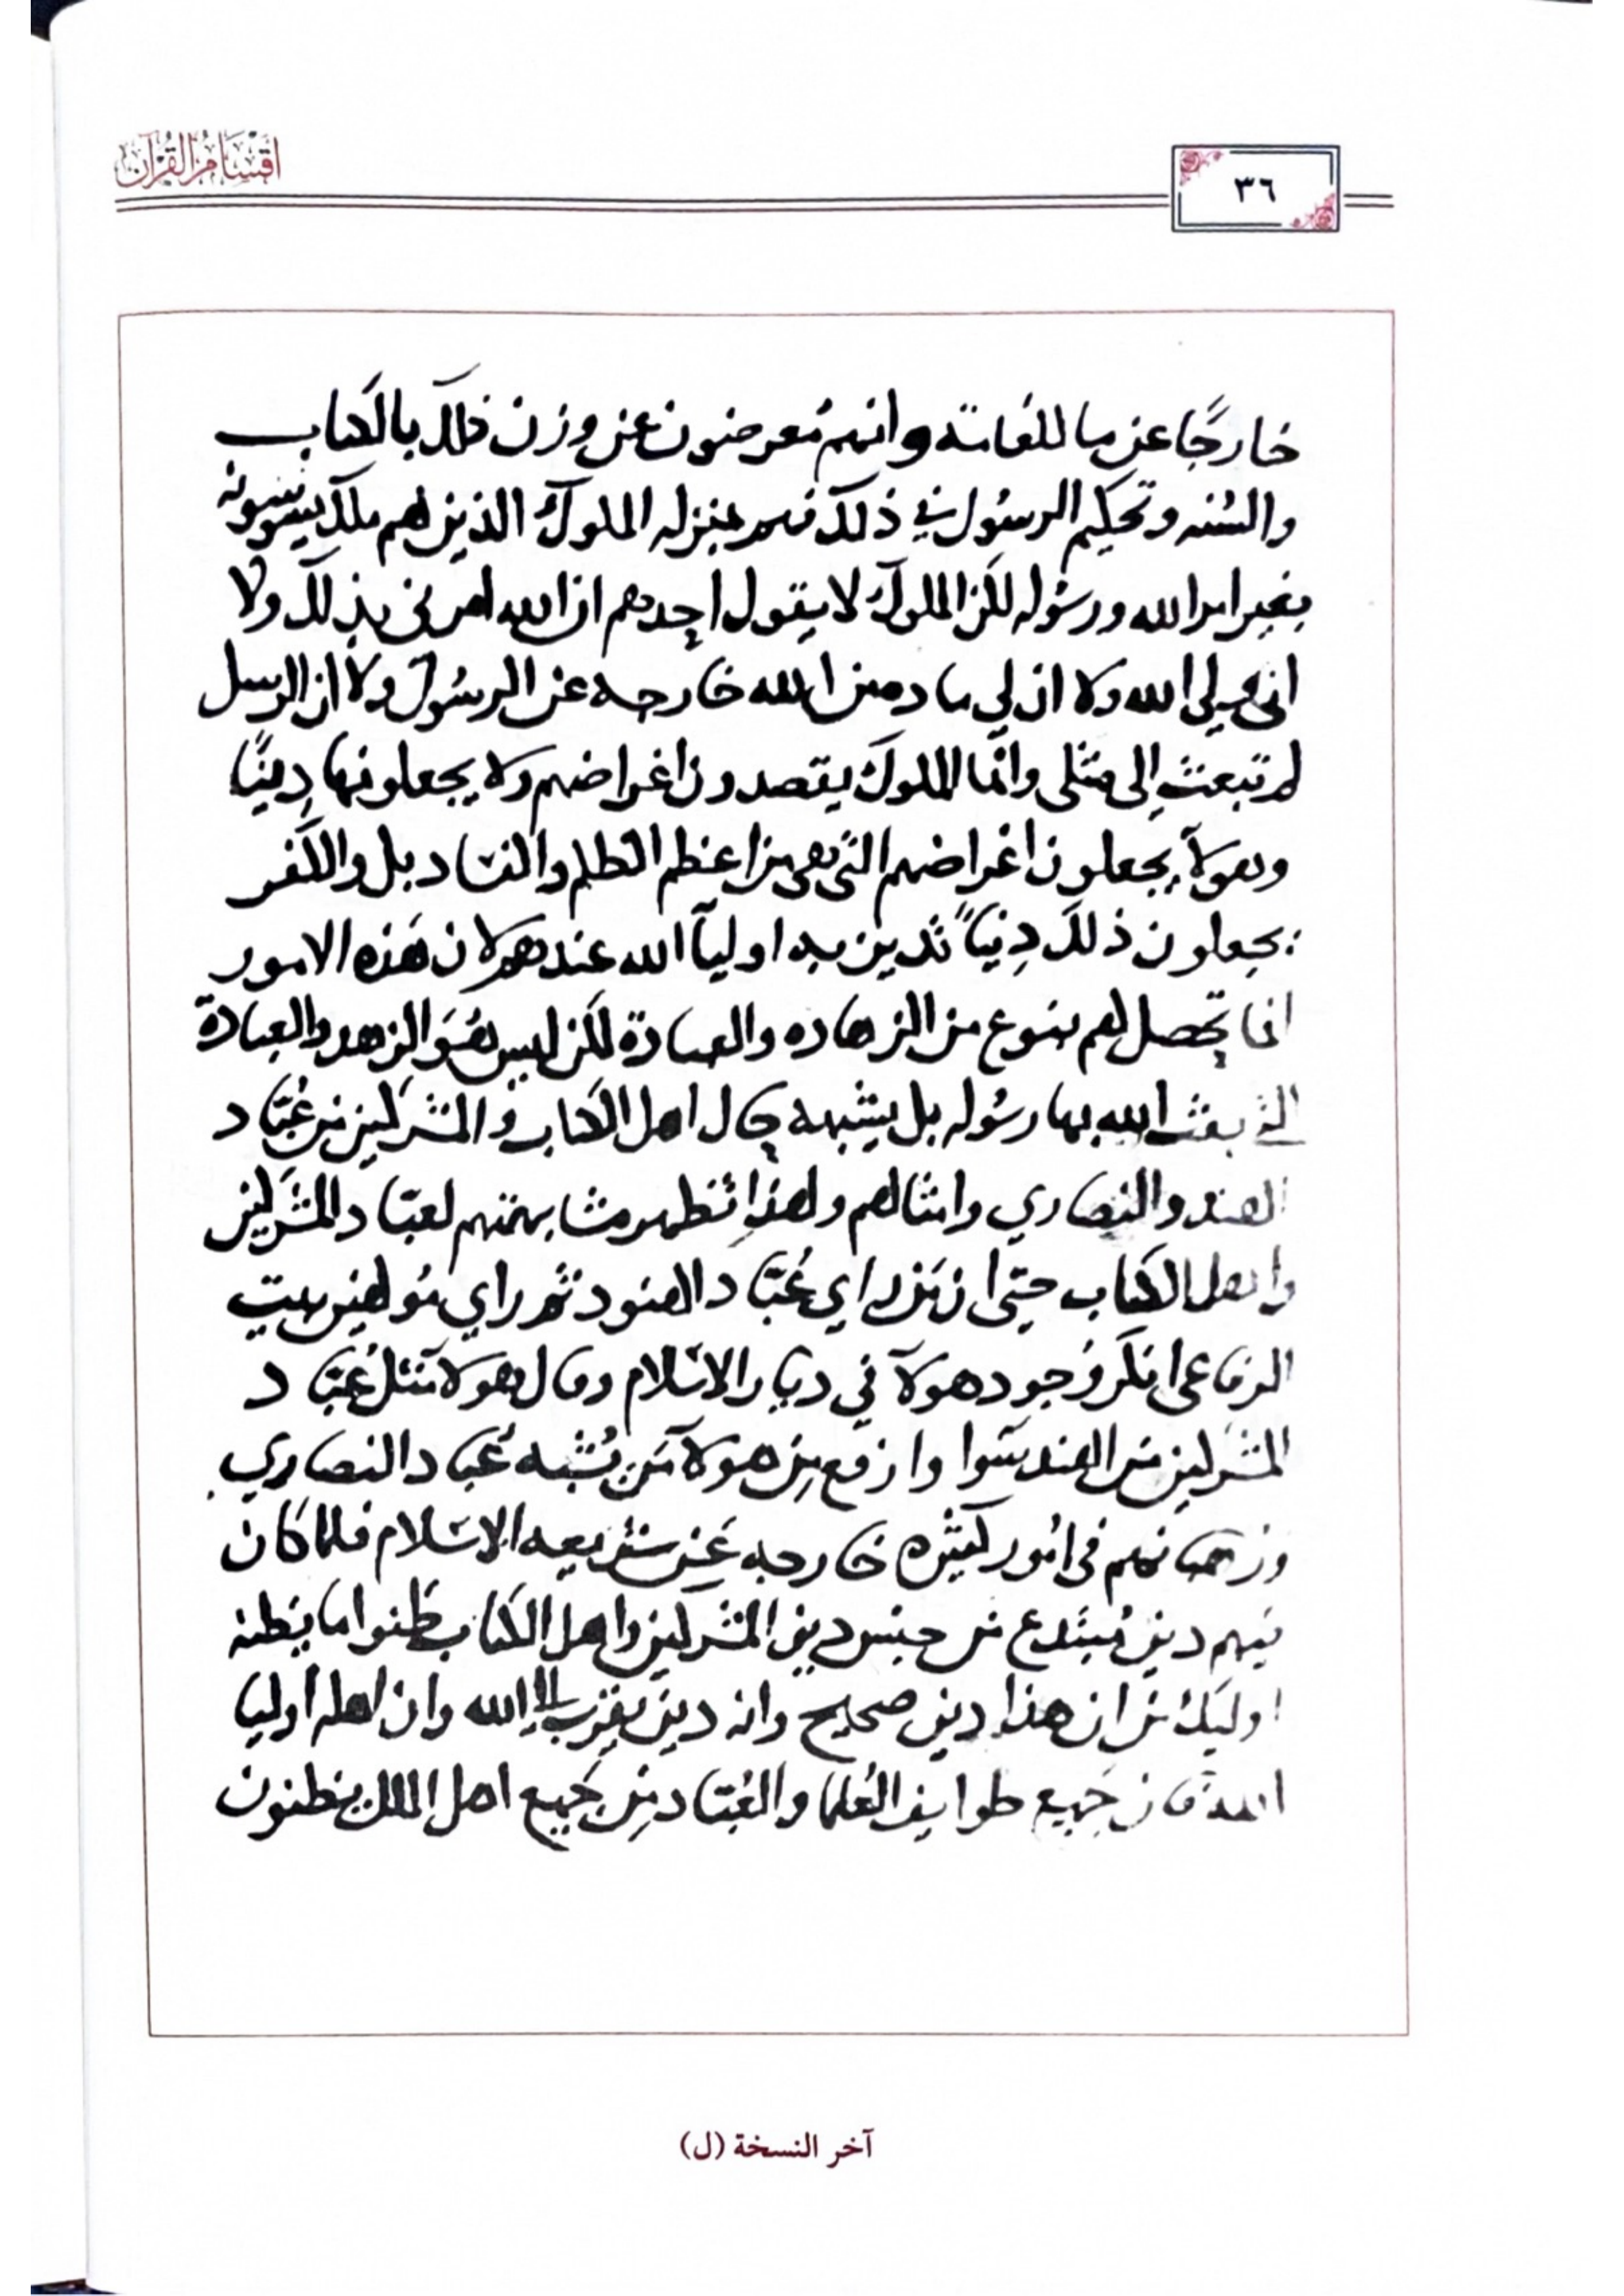 اقسام القرآن
٣٦
خارجًا عن ما للعامة وانهم مُعرضون عن وزن ذلك بالكتاب
والسُنه وتحكيم الرسُول في ذلك فهم بمنزله الملوك الذين لهم ملك يسوسونه
بغير امر الله ورسُوله لكن الملوك لا يقول احدهم ان الله امرني بذلك ولا
اني ولي الله ولا ان لي مادة من الله خارجه عن الرسُول ولا ان الرسل
لم تبعث إلى مثلي وانما الملوك يقصدون اغراضهم ولا يجعلونها دِينًا
وهولآء يجعلون اغراضهم التي هي من اعظم الظلم والفساد بل والكفر
يجعلون ذلك دِينًا تدين به اوليآ الله عندهم لان هَذه الامور
انما تحصل لهم بنوع من الزهاده والعبادة لكن ليس هُوَ الزهد والعبادة
التي بعث الله بها رسُوله بل يشبهه حال اهل الكتاب والمشركين من عُبّاد
الهند والنصاري وامثالهم ولهذا تظهر مشابهتهم لعبّاد المشركين
واهل الكتاب حتى ان مَن راي عُبّاد الهنود ثم راي مُولهين بيت
الرفاعي انكر وُجود هولآ في ديار الاسْلام وقال هولا مثل عُبّاد
المشركين من الهند سَوا وارفع مِن هولآ مَن يُشبه عُباد النصاري
ورهبانهم في امُور كثيره خارجه عَن شريعه الاسْلام فلما كان
فيهم دين مُبتَدع من جنس دين المشركين واهل الكتاب ظنوا ما يظنه
اوليك من ان هذا دين صحيح وانه دين يقرب الى الله وان اهله اوليا
الله فان جَميع طوايف العُلما والعُبّاد مِن جَميع اهل الملل يظنون
آخر النسخة (ل)